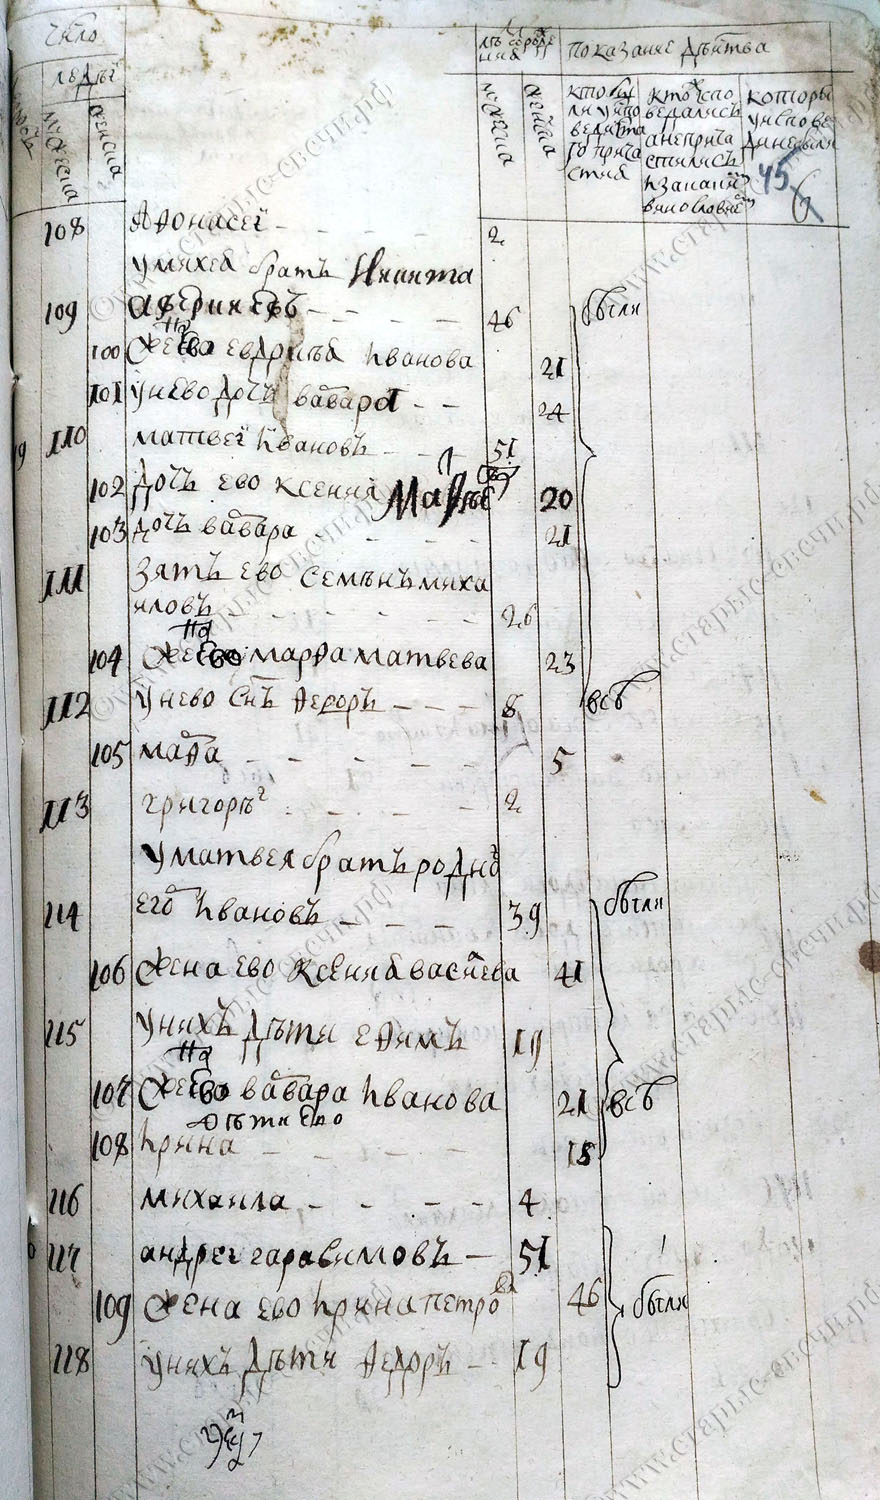 число
людей
мужеска
женска
мужеска
женска
показание действа
кто бы
ли у испо
веди и с та
го прича
стия
кто испо
ведались
а не прича
стились
и за какий
винословией
которы
у испове
ди не были
45
108 Афонасей 2
у михея братъ Никита
109 аверкиевъ 46 были
100 жена ево евдокѣя иванова 21
101 у нево дочь вавара 24
110 матвей ивановъ 51
102 дочь ево ксения 20
103 дочь вавара 21
111 зять ево семѣнъ миха
иловъ 26
104 жена ево марѳа матвѣева 23
112 у нево снъ ѳедоръ 8 всѣ
105 мароа 5
113 григорѣй 2
у матвея братъ родно
114 егоръ ивановъ 39 были
106 жена ево ксения васиева 41
115 у нихъ дѣти ефимъ 19
107 жена ево вавара иванова 21 всѣ
дѣти ево
108 ирина 15
116 михаила 4
117 андрей гаравимовъ 51
109 жена ево ирина петрова 46 были
118 у нихъ дѣти ѳедоръ 19